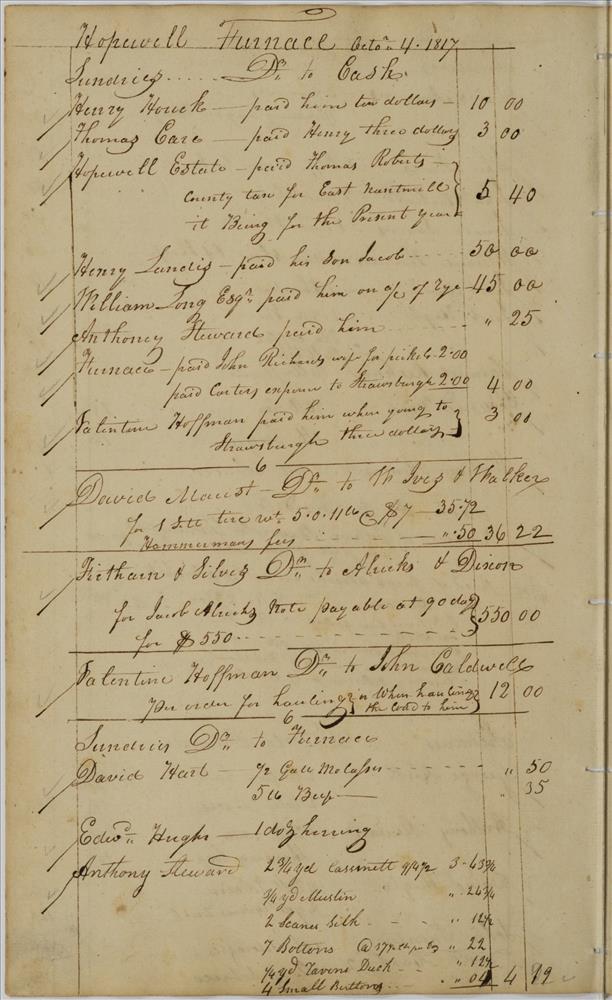 Hopewell Furnace Octor 4. 1817
Sundries ..... Dr to Cash
Henry Houck — paid him ten dollars — 10 00
Thomas Care — paid Henry three dollars 3 00
Hopewell Estate — paid Thomas Roberts —
County tax for East Nantmill
it Being for the Present year 5 40
Henry Landis — paid his Son Jacob ..... 50 00
William Long Esqr paid him on a/c of Rye — 45 00
Anthoney Steward paid him ....... " 25
Furnace — paid John Richards wife for 2.00
paid Carters expence to Strawsburgh 2.00 4 00
Valentine Hoffman paid him when going to
Strawsburgh three dollars — 3 00
6
David Maust — Dr to Wm Ives & Walker
for 1 Sett tire wt. 5.0.11 lb @ $7 — 35.72
Hammermans fees — ".50 36 22
Fitharn & Silvez Dr to Alricks & Dixon
for Jacob Alricks Note payable at 90 days
for $550 550 00
Valentine Hoffman Dr to John Caldwell
Per order for hauling when hauling
the to him 12 00
6
Sundries Dr to Furnace
David Hart — 1/2 Galls Molasses " 50
5 lb Beef — " 35
Edwd Hughs — 1 doz herring
Anthony Steward 2 3/4 yd Cassinett 3.63 3/4
3/4 yd Muslin " 24 3/4
2 Scanes Silk " 12 1/2
7 Bottons @ " 22
1/4 yd Ravens Duck " 12 1/2
4 Small Buttons " 04 4 19